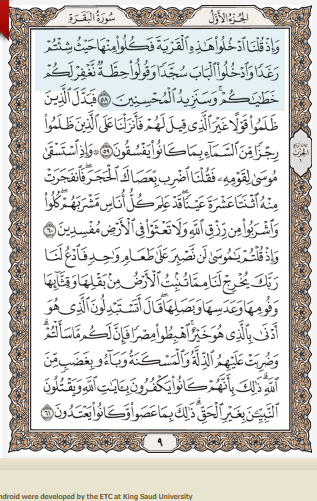 الجزء الأول
سورة البقرة
وَإِذْ قُلْنَا ٱدْخُلُوا۟ هَٰذِهِ ٱلْقَرْيَةَ فَكُلُوا۟ مِنْهَا حَيْثُ شِئْتُمْ
رَغَدًا وَٱدْخُلُوا۟ ٱلْبَابَ سُجَّدًا وَقُولُوا۟ حِطَّةٌ نَّغْفِرْ لَكُمْ
خَطَٰيَٰكُمْ ۚ وَسَنَزِيدُ ٱلْمُحْسِنِينَ ٥٨ فَبَدَّلَ ٱلَّذِينَ
ظَلَمُوا۟ قَوْلًا غَيْرَ ٱلَّذِى قِيلَ لَهُمْ فَأَنزَلْنَا عَلَى ٱلَّذِينَ ظَلَمُوا۟
رِجْزًا مِّنَ ٱلسَّمَآءِ بِمَا كَانُوا۟ يَفْسُقُونَ ٥٩ ۞ وَإِذِ ٱسْتَسْقَىٰ
مُوسَىٰ لِقَوْمِهِۦ فَقُلْنَا ٱضْرِب بِّعَصَاكَ ٱلْحَجَرَ ۖ فَٱنفَجَرَتْ
مِنْهُ ٱثْنَتَا عَشْرَةَ عَيْنًا ۖ قَدْ عَلِمَ كُلُّ أُنَاسٍ مَّشْرَبَهُمْ ۖ كُلُوا۟
وَٱشْرَبُوا۟ مِن رِّزْقِ ٱللَّهِ وَلَا تَعْثَوْا۟ فِى ٱلْأَرْضِ مُفْسِدِينَ ٦٠
وَإِذْ قُلْتُمْ يَٰمُوسَىٰ لَن نَّصْبِرَ عَلَىٰ طَعَامٍ وَٰحِدٍ فَٱدْعُ لَنَا
رَبَّكَ يُخْرِجْ لَنَا مِمَّا تُنۢبِتُ ٱلْأَرْضُ مِنۢ بَقْلِهَا وَقِثَّآئِهَا
وَفُومِهَا وَعَدَسِهَا وَبَصَلِهَا ۖ قَالَ أَتَسْتَبْدِلُونَ ٱلَّذِى هُوَ
أَدْنَىٰ بِٱلَّذِى هُوَ خَيْرٌ ۚ ٱهْبِطُوا۟ مِصْرًا فَإِنَّ لَكُم مَّا سَأَلْتُمْ ۗ
وَضُرِبَتْ عَلَيْهِمُ ٱلذِّلَّةُ وَٱلْمَسْكَنَةُ وَبَآءُو بِغَضَبٍ مِّنَ
ٱللَّهِ ۗ ذَٰلِكَ بِأَنَّهُمْ كَانُوا۟ يَكْفُرُونَ بِـَٔايَٰتِ ٱللَّهِ وَيَقْتُلُونَ
ٱلنَّبِيِّـۧنَ بِغَيْرِ ٱلْحَقِّ ۗ ذَٰلِكَ بِمَا عَصَوا۟ وَّكَانُوا۟ يَعْتَدُونَ ٦١
٩
ndroid were developed by the ETC at King Saud University